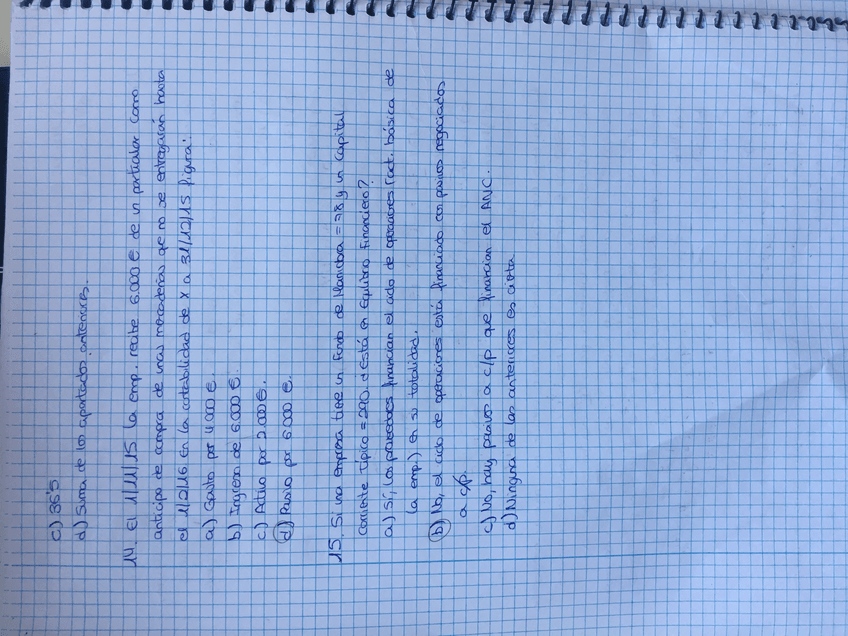 c) 36'5
d) Suma de los apartados anteriores.
14. El 1/11/15 la emp. recibe 6.000 € de un particular como
anticipo de compra de unas mercaderías que no se entregarán hasta
el 1/2/16 En la contabilidad de X a 31/12/15 figura:
a) Gasto por 4.000 €.
b) Ingreso de 6.000 €.
c) Activo por 2.000 €.
d) Pasivo por 6.000 €.
15. Si una empresa tiene un Fondo de Maniobra = 78 y un Capital
Corriente Típico = 290. ¿Está en Equilibrio Financiero?
a) Sí, los proveedores financian el ciclo de operaciones (act. básica de
la emp.) en su totalidad.
b) No, el ciclo de operaciones está financiado con pasivos negociados
a c/p.
c) No, hay pasivo a c/p que financian el ANC.
d) Ninguna de las anteriores es cierta